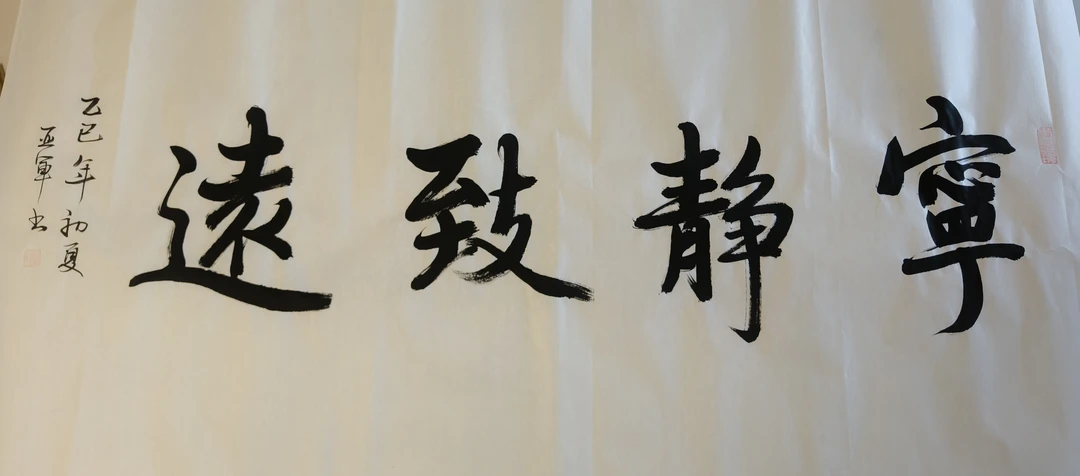 寧静致遠
乙巳年初夏
亚軍书